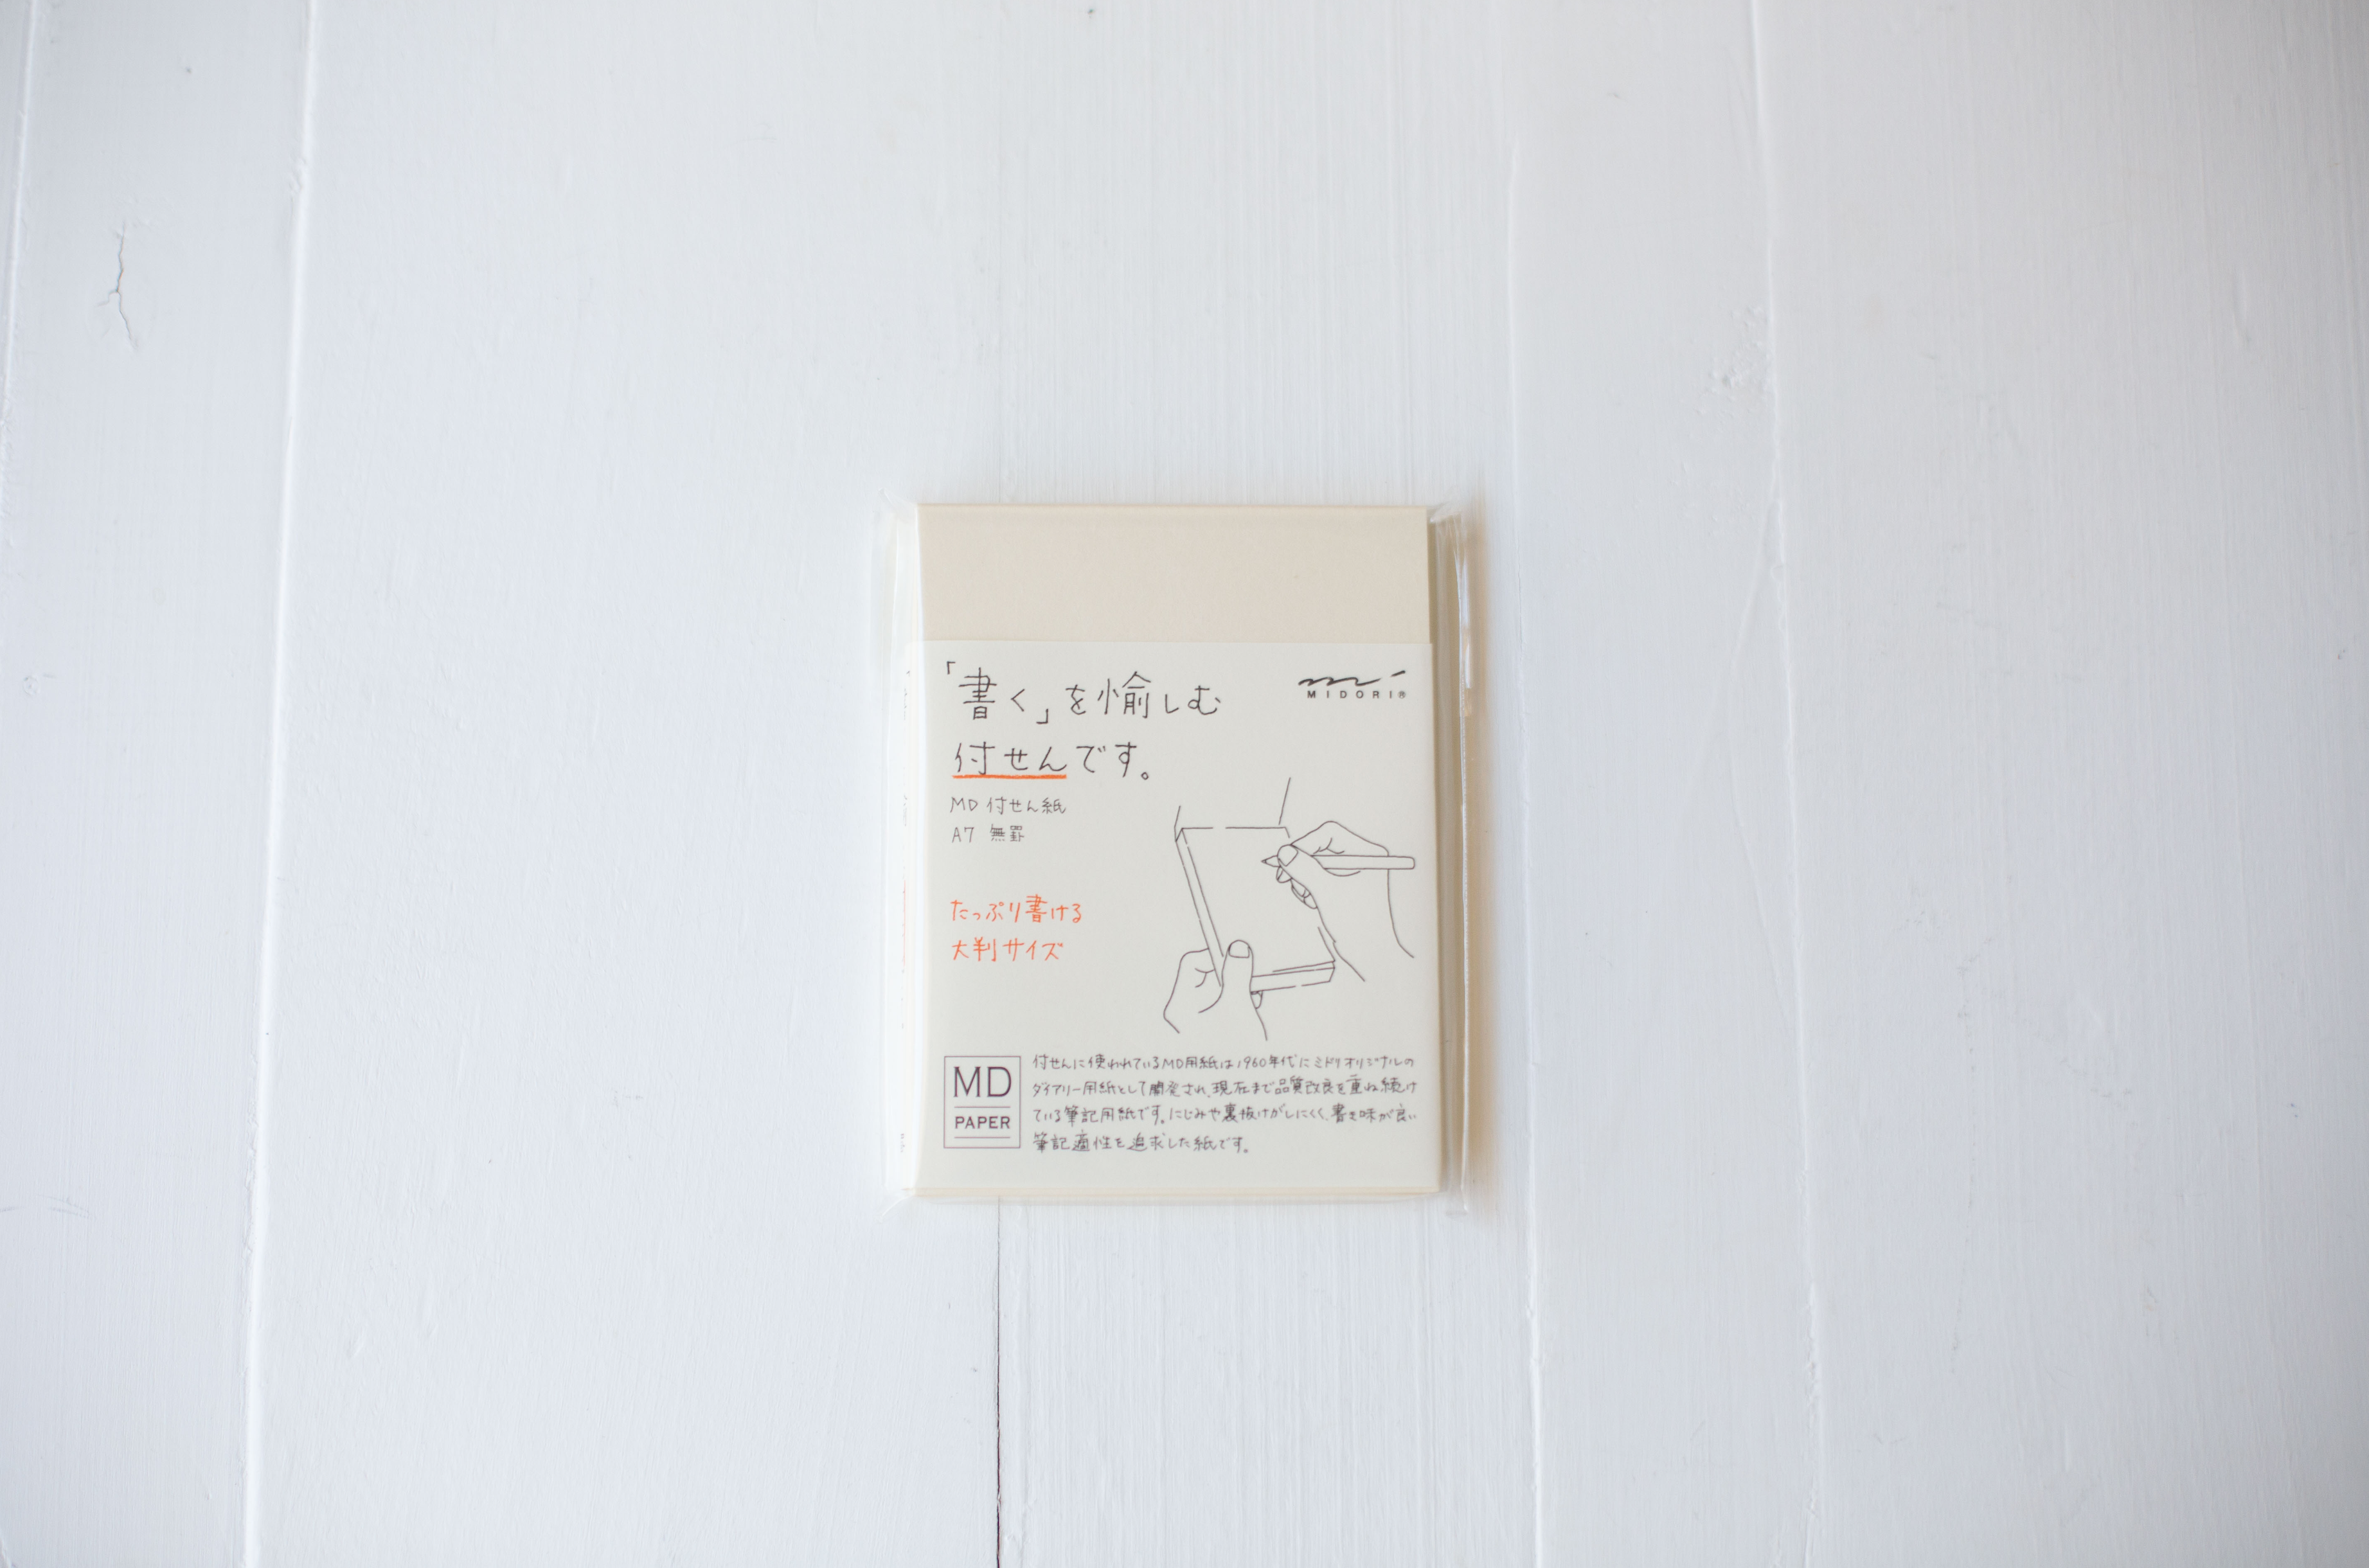 「書く」を愉しむ
付せんです。
MIDORI®
MD 付せん紙
A7 無罫
たっぷり書ける
大判サイズ
MD
PAPER
付せんに使われているMD用紙は1960年代にミドリオリジナルの
ダイアリー用紙として開発され、現在まで品質改良を重ね続け
ている筆記用紙です。にじみや裏抜けがしにくく、書き味が良い
筆記適性を追求した紙です。